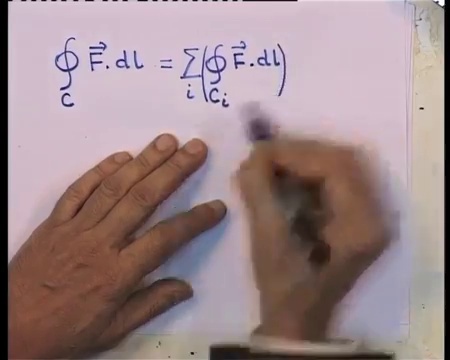 ∮_C F⃗.dl = Σ_i (∮_{C_i} F⃗.dl)